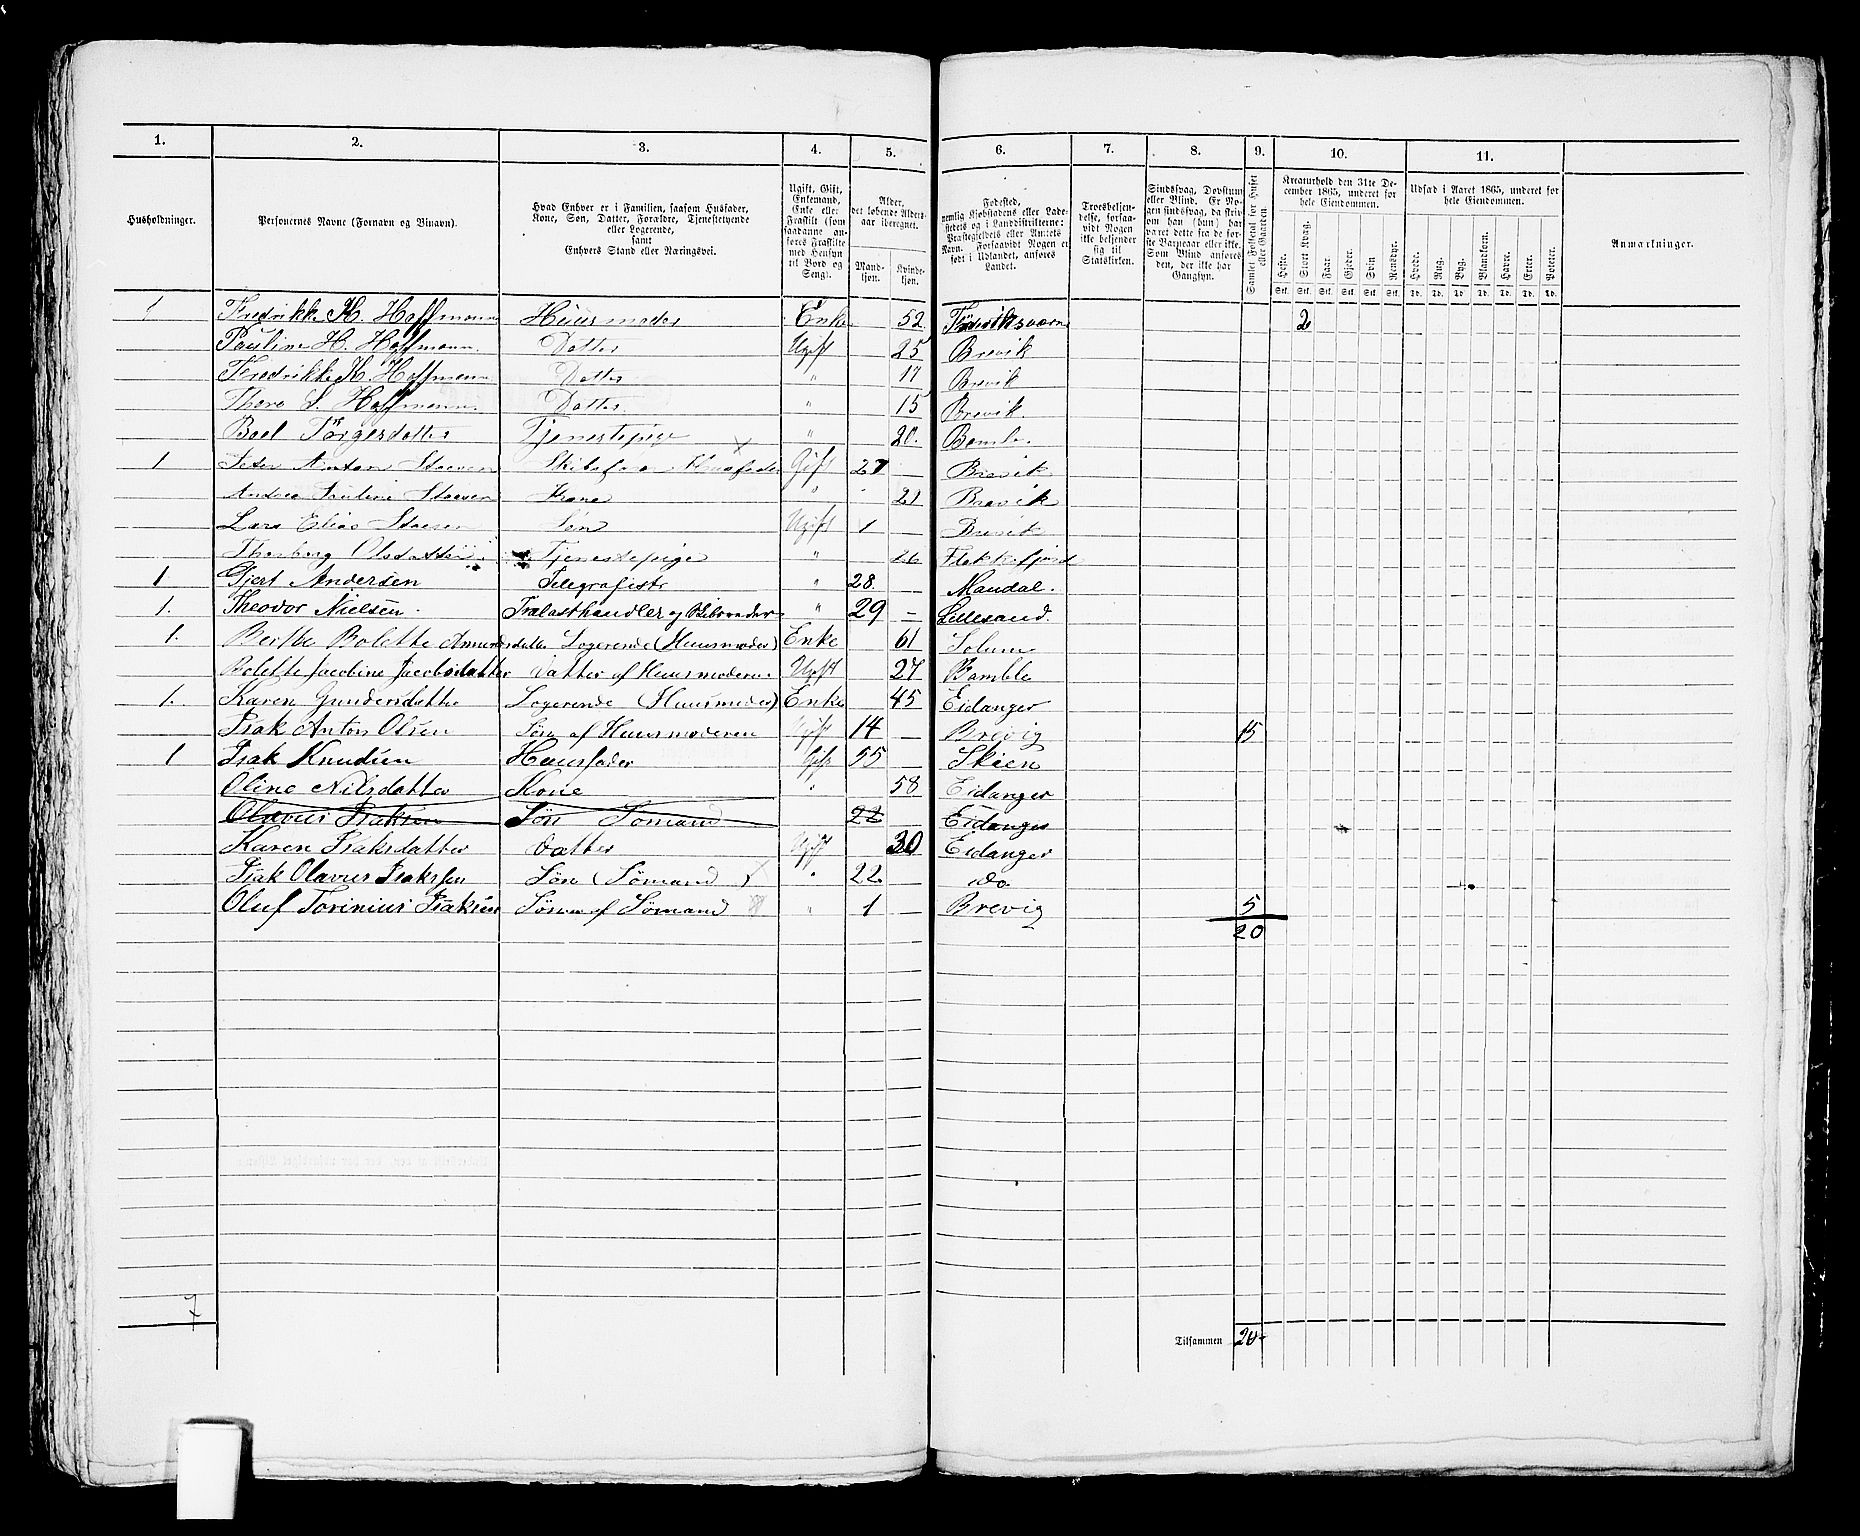 1. 2. 3. 4. 5. 6. 7. 8. 9. 10. 11.
Husholdninger.
Personernes Navne (Fornavn og Binavn).
Hvad Enhver er i Familien, saasom Husfader,
Kone, Søn, Datter, Forældre, Tjenestetyende
eller Logerende,
samt
Enhvers Stand eller Næringsvei.
Ugift, Gift,
Enkemand,
Enke eller
Fraskilt (som
saadanne an-
føres Fraskilte
med Hensyn
til Bord og
Seng).
Alder,
det løbende Alders-
aar iberegnet.
Mand-
kjøn.
Kvinde-
kjøn.
Fødested,
nemlig Kjøbstadens eller Lade-
stedets og i Landdistrikterne:
Præstegjeldets eller Amtets
Navn. Forsaavidt Nogen er
født i Udlandet, anføres
Landet.
Troesbekjen-
delse, forsaa-
vidt Nogen
ikke bekjender
sig til
Statskirken.
Sindssvag, Døvstum
eller Blind. Er No-
gen sindssvag, da skriv
om han (hun) har
været dette fra de før-
ste Barneaar eller ikke.
Som Blind anføres
den, der ikke har
Gangsyn.
Samlet Folketal for Huset
eller Gaarden.
Kreaturhold den 31te De-
cember 1865, underet for
hele Eiendommen.
Heste. Stort Kvæg. Faar. Gjeder. Sviin Rensdyr.
Stk. Stk. Stk. Stk. Stk. Stk.
Udsæd i Aaret 1865, underet for
hele Eiendommen.
Hvede. Rug. Byg. Blandkorn. Havre. Erter. Poteter.
Td. Td. Td. Td. Td. Td. Td.
Anmærkninger.
1 Fredrikke K. Hoffmann Huusmoder Enke 52 Frederiksværn 2
Pauline H. Hoffmann Datter Ugift 25 Brevik
Fredrikke K. Hoffmann Datter " 17 Brevik
Thora S. Hoffmann Datter " 15 Brevik
Boel Törgersdatter Tjenestepige " 20. Bamle
1 Peder Anton Stoesen Huusfader Gift 27 Brevik
Andrea Pauline Stoesen Kone " 21 Brevik
Lars Elias Stoesen Søn Ugift 1 Brevik
Thorborg Olsdatter Tjenestepige " 26 Flekkefjord
1 Gjert Andersen Telegrafist " 28 Mandal.
1. Theodor Nielsen Trælasthandler og " 29 Lillesand.
1. Berthe Bolette Amundsdatter Logerende (Huusmoder) Enke 61 Solum
Bolette Jacobine Jacobsdatter Datter af Huusmoderen Ugift 27 Bamble
1. Karen Gundersdatter Logerende (Huusmoder) Enke 45 Eidanger
Isak Anton Olsen Søn af Huusmoderen Ugift 14 Brevig 15
1 Isak Knudsen Huusfader Gift 55 Skien
Oline Nilsdatter Kone " 58 Eidanger
Olavus Isaksen Søn Sømand 22 Eidanger
Karen Isaksdatter Datter Ugift 30 Eidanger
Isak Olavus Isaksen Søn (Sømand) " 22 do
Oluf Torinius Isaksen Søn af Sømand " 1 Brevig 5
20
7
Tilsammen 20